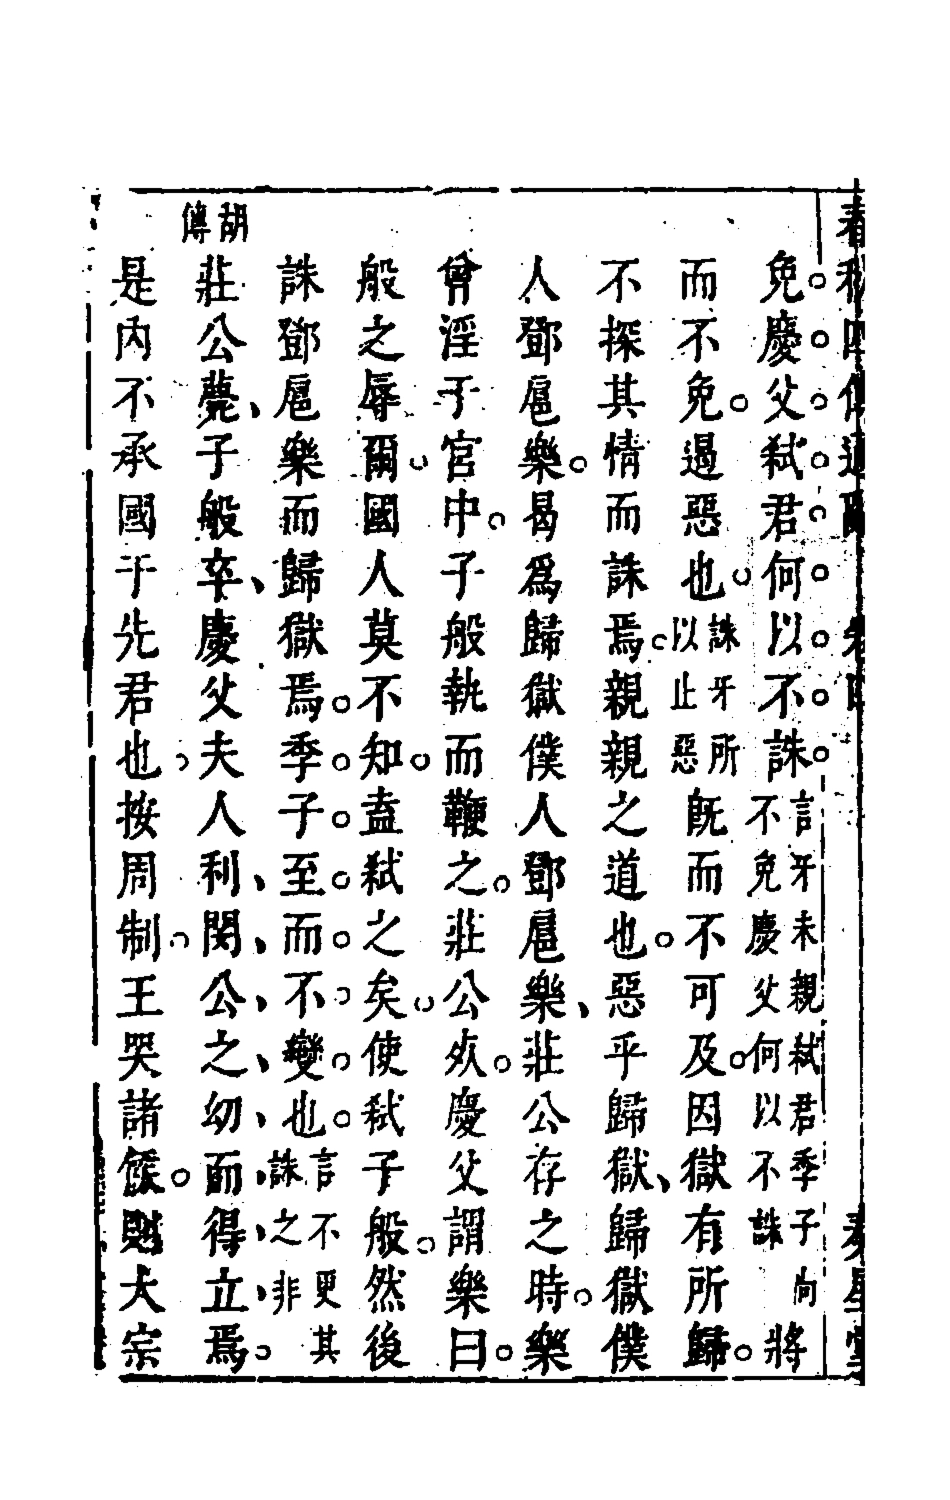 春秋四傳通　卷四
免慶父弑君何以不誅言牙未親弑君季子向不免慶父何以不誅將
而不免遏惡也誅牙所以止惡既而不可及因獄有所歸
不探其情而誅焉親親之道也惡乎歸獄歸獄僕
人鄧扈樂曷爲歸獄僕人鄧扈樂莊公存之時樂
曾淫于宮中子般執而鞭之莊公死慶父謂樂曰
般之辱爾國人莫不知盍弑之矣使弑子般然後
誅鄧扈樂而歸獄焉季子至而不變也言不更其誅之非
胡傳
莊公薨子般卒慶父夫人利閔公之幼而得立焉
是內不承國于先君也按周制王哭諸侯則大宗